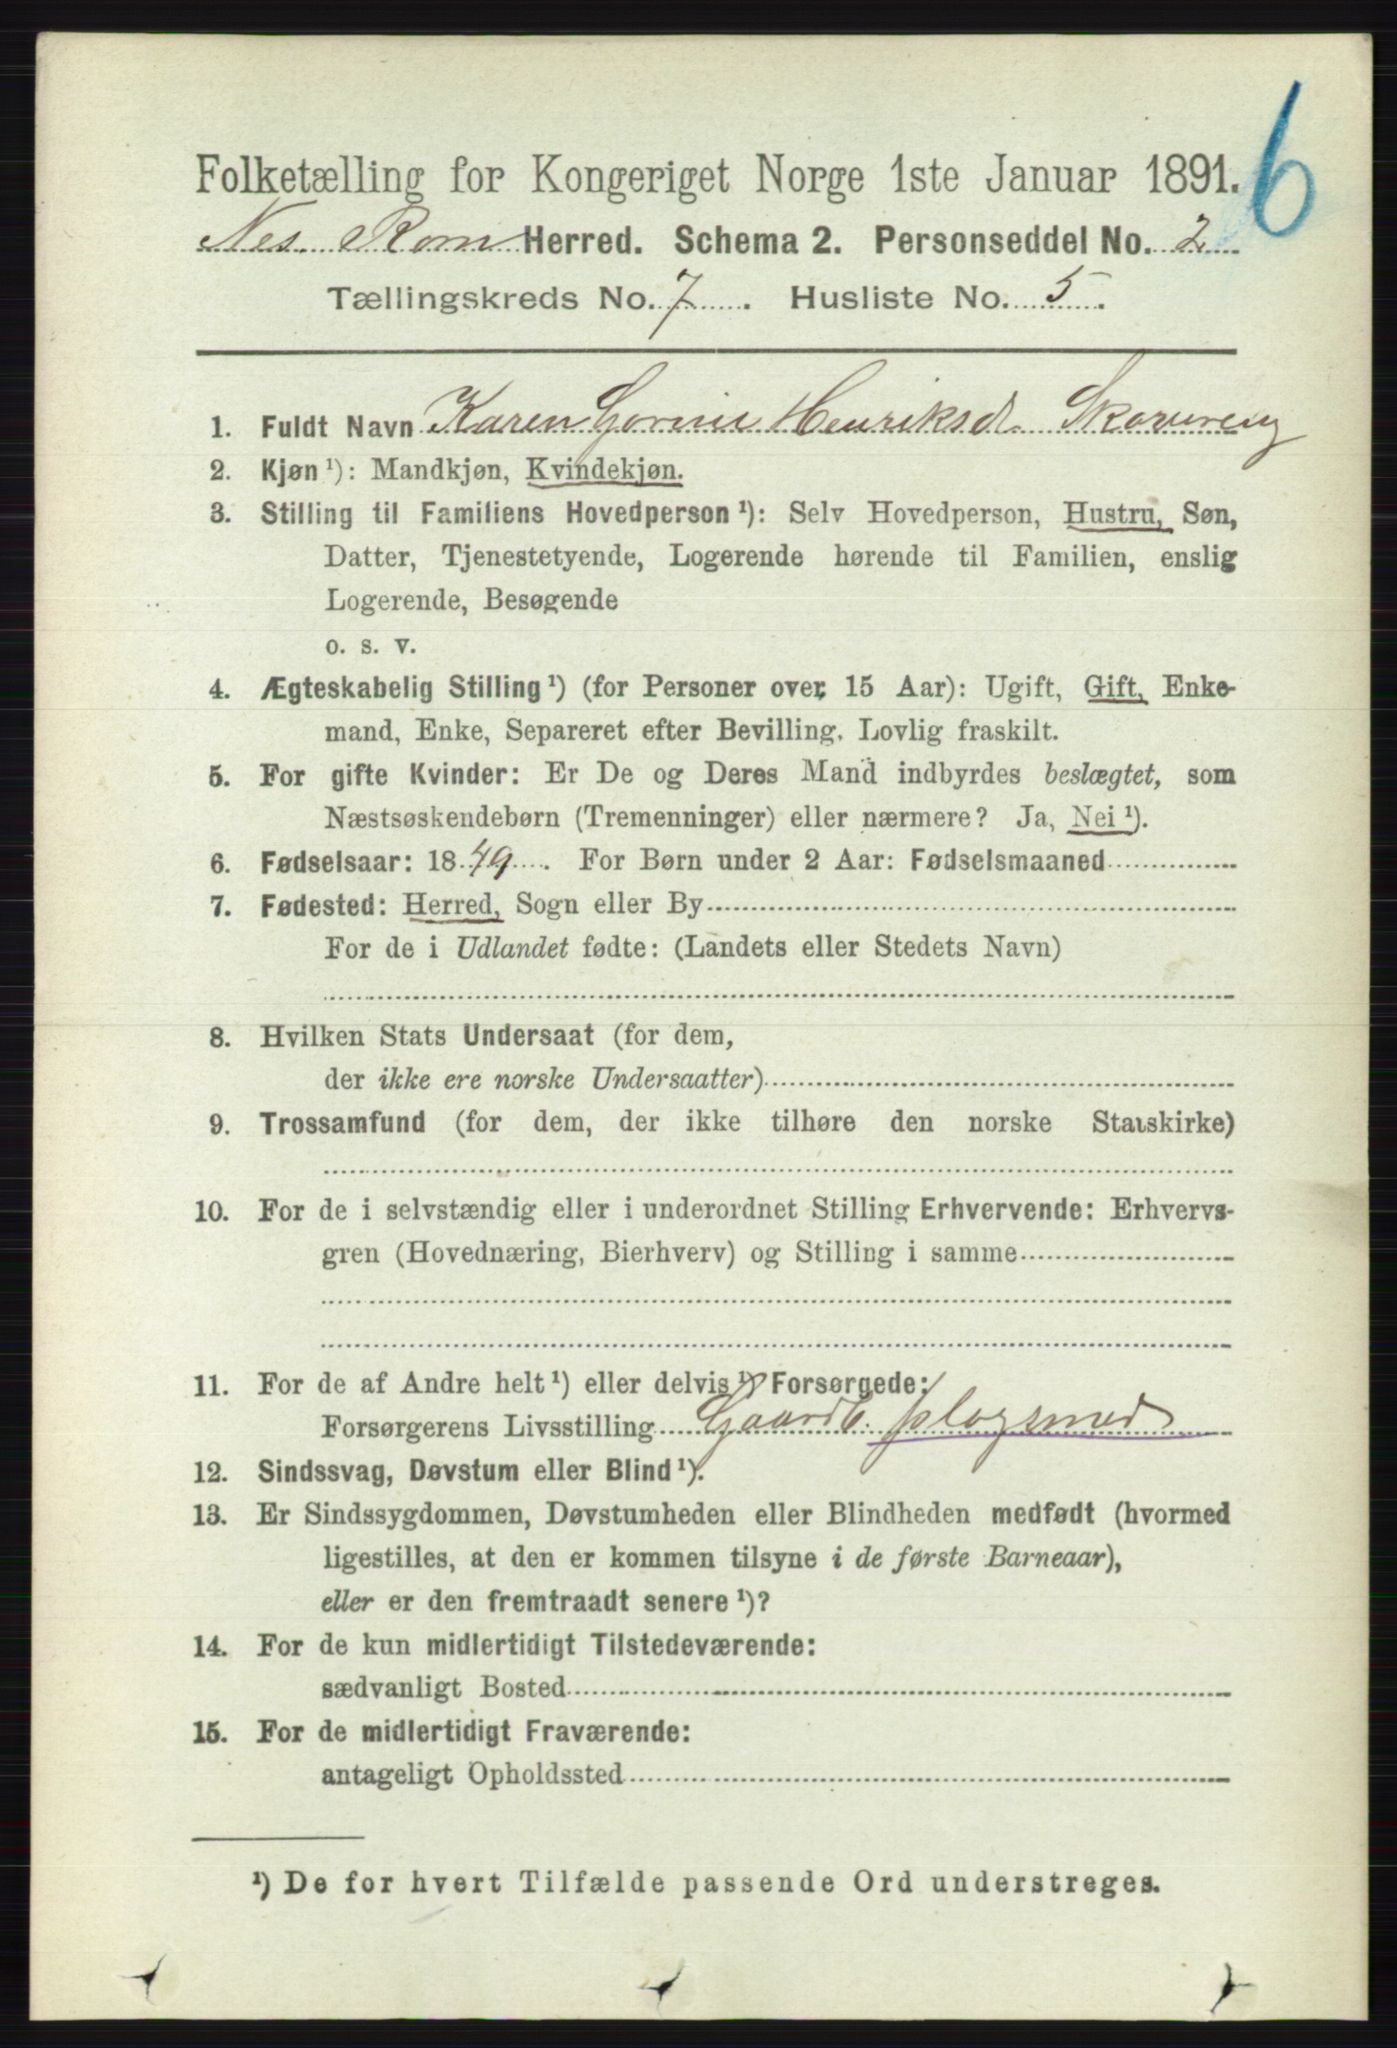 6
Folketælling for Kongeriget Norge 1ste Januar 1891.
Nes. Rom Herred. Schema 2. Personseddel No. 2
Tællingskreds No. 7. Husliste No. 5.
1. Fuldt Navn Karen Henriksd. Skovereng
2. Kjøn ¹): Mandkjøn, Kvindekjøn.
3. Stilling til Familiens Hovedperson ¹): Selv Hovedperson, Hustru, Søn,
Datter, Tjenestetyende, Logerende hørende til Familien, enslig
Logerende, Besøgende
o. s. v.
4. Ægteskabelig Stilling ¹) (for Personer over 15 Aar): Ugift, Gift, Enke-
mand, Enke, Separeret efter Bevilling. Lovlig fraskilt.
5. For gifte Kvinder: Er De og Deres Mand indbyrdes beslægtet, som
Næstsøskendebørn (Tremenninger) eller nærmere? Ja, Nei ¹).
6. Fødselsaar: 1849. For Børn under 2 Aar: Fødselsmaaned
7. Fødested: Herred, Sogn eller By
For de i Udlandet fødte: (Landets eller Stedets Navn)
8. Hvilken Stats Undersaat (for dem,
der ikke ere norske Undersaatter)
9. Trossamfund (for dem, der ikke tilhøre den norske Statskirke)
10. For de i selvstændig eller i underordnet Stilling Erhvervende: Erhvervs-
gren (Hovednæring, Bierhverv) og Stilling i samme
11. For de af Andre helt ¹) eller delvis ¹) Forsørgede:
Forsørgerens Livsstilling Gaardb. plogsmed
12. Sindssvag, Døvstum eller Blind ¹).
13. Er Sindssygdommen, Døvstumheden eller Blindheden medfødt (hvormed
ligestilles, at den er kommen tilsyne i de første Barneaar),
eller er den fremtraadt senere ¹)?
14. For de kun midlertidigt Tilstedeværende:
sædvanligt Bosted
15. For de midlertidigt Fraværende:
antageligt Opholdssted
¹) De for hvert Tilfælde passende Ord understreges.